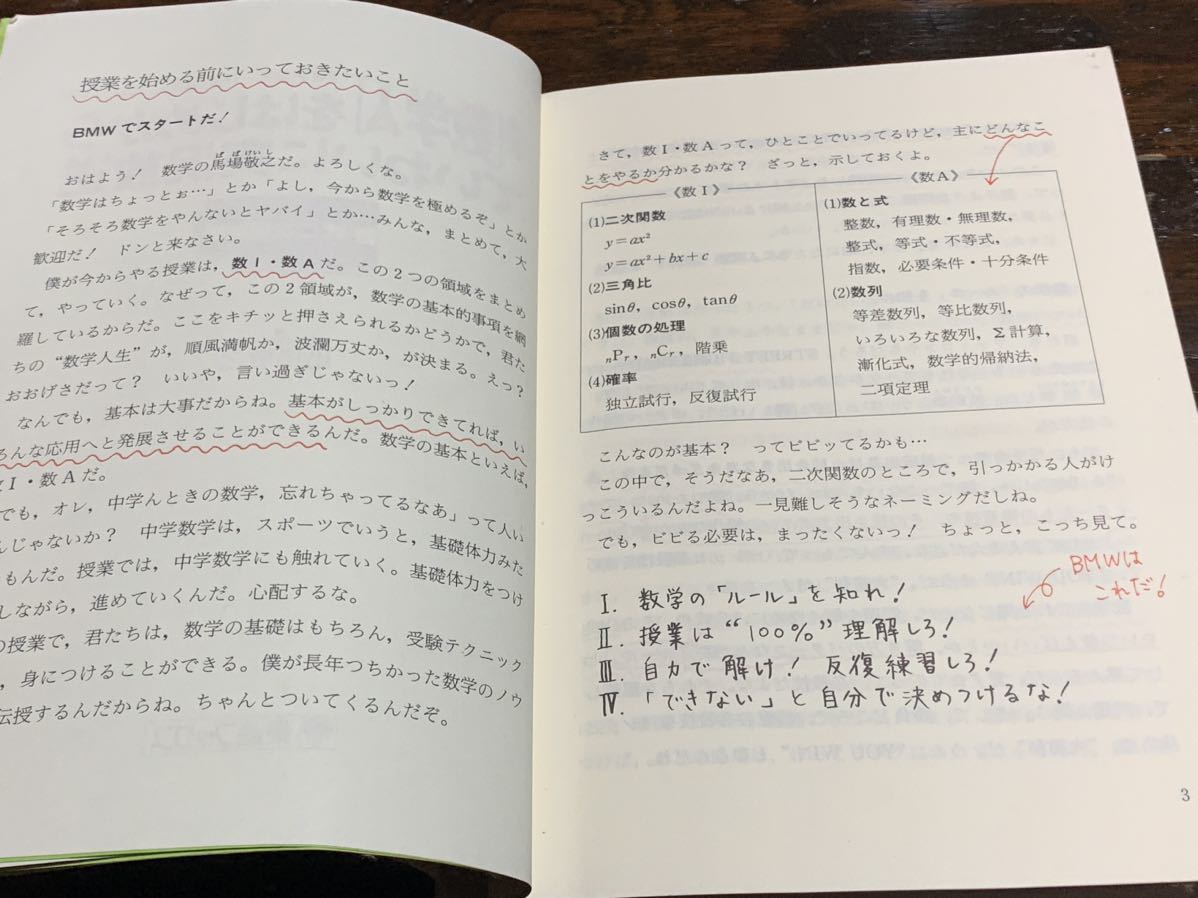 授業を始める前にいっておきたいこと
BMWでスタートだ！
ば ば けいし
おはよう！　数学の馬場敬之だ。よろしくな。
「数学はちょっとぉ…」とか「よし，今から数学を極めるぞ」とか
「そろそろ数学をやんないとヤバイ」とか…みんな，まとめて，大
歓迎だ！　ドンと来なさい。
僕が今からやる授業は，数Ⅰ・数Aだ。この2つの領域をまとめ
て，やっていく。なぜって，この2領域が，数学の基本的事項を網
羅しているからだ。ここをキチッと押さえられるかどうかで，君た
ちの“数学人生”が，順風満帆か，波瀾万丈か，が決まる。えっ？
おおげさだって？　いいや，言い過ぎじゃないっ！
なんでも，基本は大事だからね。基本がしっかりできてれば，い
ろんな応用へと発展させることができるんだ。数学の基本といえば，
Ⅰ・数Aだ。
でも，オレ，中学んときの数学，忘れちゃってるなあ」って人い
んじゃないか？　中学数学は，スポーツでいうと，基礎体力みた
もんだ。授業では，中学数学にも触れていく。基礎体力をつけ
しながら，進めていくんだ。心配するな。
の授業で，君たちは，数学の基礎はもちろん，受験テクニック
，身につけることができる。僕が長年つちかった数学のノウ
伝授するんだからね。ちゃんとついてくるんだぞ。
さて，数Ⅰ・数Aって，ひとことでいってるけど，主にどんなこ
とをやるか分かるかな？　ざっと，示しておくよ。
《数Ⅰ》
(1)二次関数
y＝ax²
y＝ax²＋bx＋c
(2)三角比
sinθ，cosθ，tanθ
(3)個数の処理
ₙPᵣ，ₙCᵣ，階乗
(4)確率
独立試行，反復試行
《数A》
(1)数と式
整数，有理数・無理数，
整式，等式・不等式，
指数，必要条件・十分条件
(2)数列
等差数列，等比数列，
いろいろな数列，Σ計算，
漸化式，数学的帰納法，
二項定理
こんなのが基本？　ってビビッてるかも…
この中で，そうだなあ，二次関数のところで，引っかかる人がけ
っこういるんだよね。一見難しそうなネーミングだしね。
でも，ビビる必要は，まったくないっ！　ちょっと，こっち見て。
BMWは
これだ！
Ⅰ. 数学の「ルール」を知れ！
Ⅱ. 授業は“100％”理解しろ！
Ⅲ. 自力で解け！ 反復練習しろ！
Ⅳ. 「できない」と自分で決めつけるな！
3